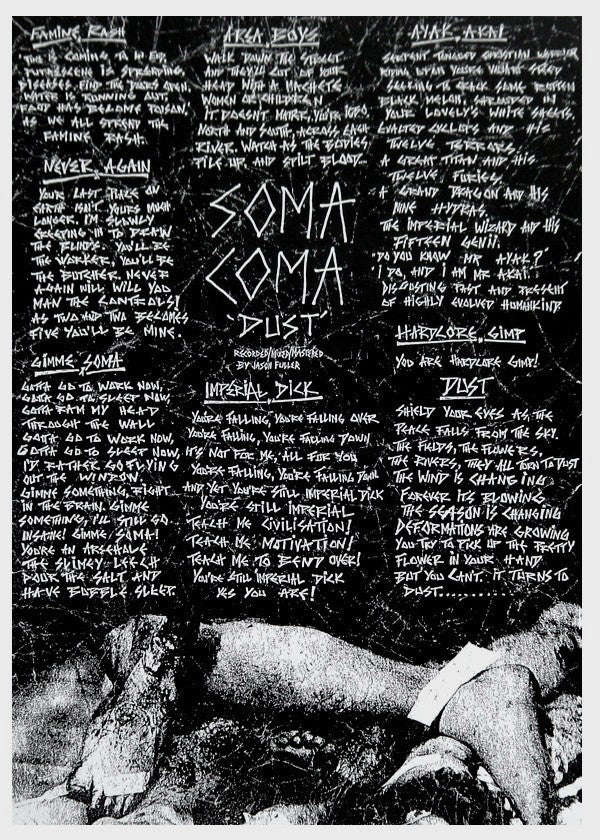 FAMINE RASH
THIS IS COMING TO AN END,
PUTRASCENE IS SPREADING,
DISEASES FIND THE DOORS OPEN,
WATER IS RUNNING OUT,
FOOD HAS BECOME POISON,
AS WE ALL SPREAD THE
FAMINE RASH.
NEVER AGAIN
YOUR LAST PLACE ON
EARTH ISN'T YOURS MUCH
LONGER. I'M SLOWLY
CREEPING IN TO DRAW
THE BLINDS. YOU'LL BE
THE WORKER, YOU'LL BE
THE BUTCHER. NEVER
AGAIN WILL WILL YOU
MAN THE CONTROLS!
AS TWO AND TWO BECOMES
FIVE YOU'LL BE MINE.
GIMME SOMA
GOTTA GO TO WORK NOW,
GOTTA GO TO SLEEP NOW,
GOTTA RAM MY HEAD
THROUGH THE WALL
GOTTA GO TO WORK NOW,
GOTTA GO TO SLEEP NOW,
I'D RATHER GO FLYING
OUT THE WINDOW.
GIMME SOMETHING, RIGHT
IN THE BRAIN. GIMME
SOMETHING, I'LL STILL GO
INSANE! GIMME SOMA!
YOU'RE AN ARSEHOLE
THE SLIMEY LEECH
POUR THE SALT AND
HAVE BUBBLE SLEEP.
AREA BOYS
WALK DOWN THE STREET
AND THEY'LL CUT OF YOUR
HEAD WITH A MACHETE
WOMEN OR CHILDREN
IT DOESN'T MATTR, YOU'RE 100%
NORTH AND SOUTH, ACROSS EACH
RIVER. WATCH AS THE BODIES
PILE UP, AND SPILT BLOOD.
SOMA
COMA
'DUST'
RECORDED/MIXED/MASTERED
BY JASON FULLER
IMPERIAL DICK
YOU'RE FALLING, YOU'RE FALLING OVER
YOU'RE FALLING, YOU'RE FALLING DOWN
IT'S NOT FOR ME, ALL FOR YOU
YOU'RE FALLING, YOU'RE FALLING DOWN
AND YET YOU'RE STILL IMPERIAL DICK
YOU'RE STILL IMPERIAL
TEACH ME CIVILISATION!
TEACH ME MOTIVATION!
TEACH ME TO BEND OVER!
YOU'RE STILL IMPERIAL DICK
YES YOU ARE!
AYAK, AKAI
SERPENT TONGUED CHRISTIAN WARRIOR
RIDING UPON YOU'RE VALIANT STEED
SEEKING TO CRACK SOME ROTTEN
BLACK MELON. SHROUDED IN
YOUR LOVELY'S WHITE SHEETS,
EXALTED CYCLOPS AND HIS
TWELVE TERRORS.
A GREAT TITAN AND HIS
TWELVE FURIES.
A GRAND DRAGON AND HIS
NINE HYDRAS.
THE IMPERIAL WIZARD AND HIS
FIFTEEN GENII.
'DO YOU KNOW MR AYAK?'
'I DO, AND I AM MR AKAI.'
DISGUSTING PAST AND PRESENT
OF HIGHLY EVOLVED HUMANKIND
HARDCORE GIMP
YOU ARE HARDCORE GIMP!
DUST
SHIELD YOUR EYES AS THE
PEACE FALLS FROM THE SKY.
THE FIELDS, THE FLOWERS,
THE RIVERS, THEY ALL TURN TO DUST
THE WIND IS CHANGING
FOREVER ITS BLOWING
THE SEASON IS CHANGING
DEFORMATIONS ARE GROWING
YOU TRY TO PICK UP THE PRETTY
FLOWER IN YOUR HAND
BUT YOU CAN'T. IT TURNS TO
DUST...........